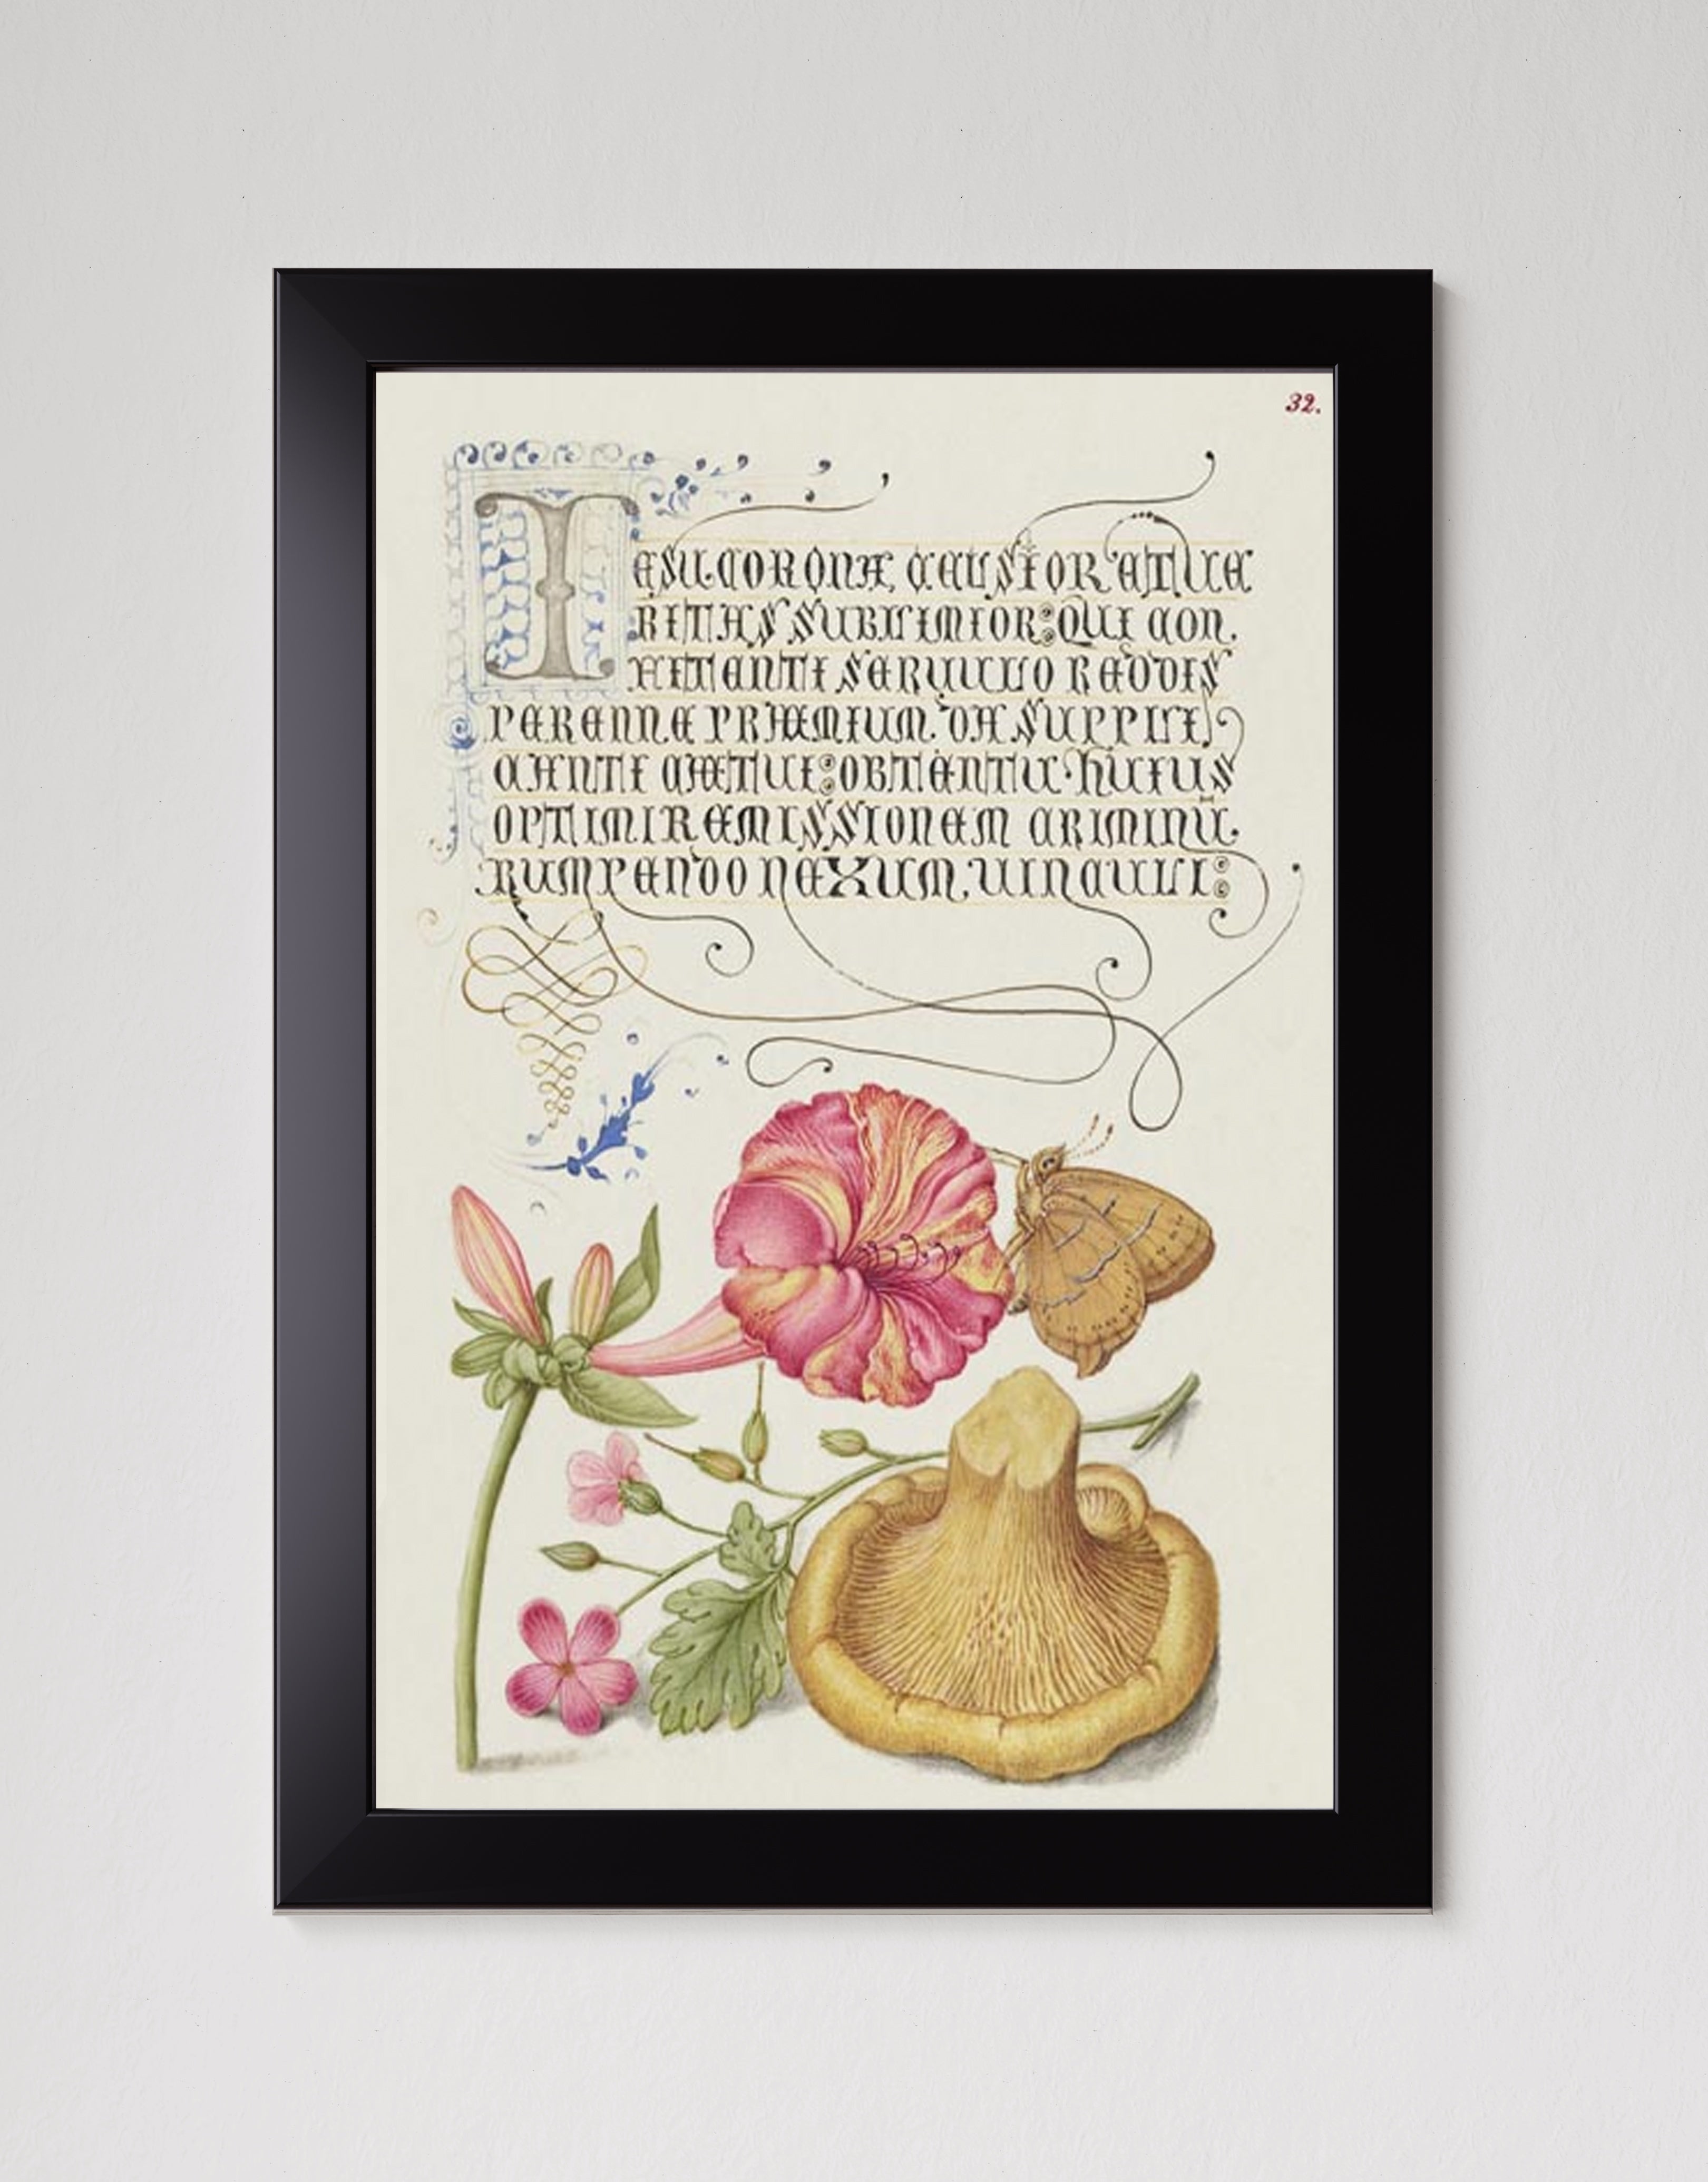 32.
IESU. CORONÆ, CELSIOR ET UE
RITAS SUBLIMIOR: QUI CON.
FITENTI SERUULO REDDIS
PERENNE PRÆMIUM. DA SUPPLI
CANTI CÆTUI: OBTENTU. HUIUS
OPTIMI REMISSIONEM CRIMINŪ.
RUMPENDO NEXUM. UINCULI: